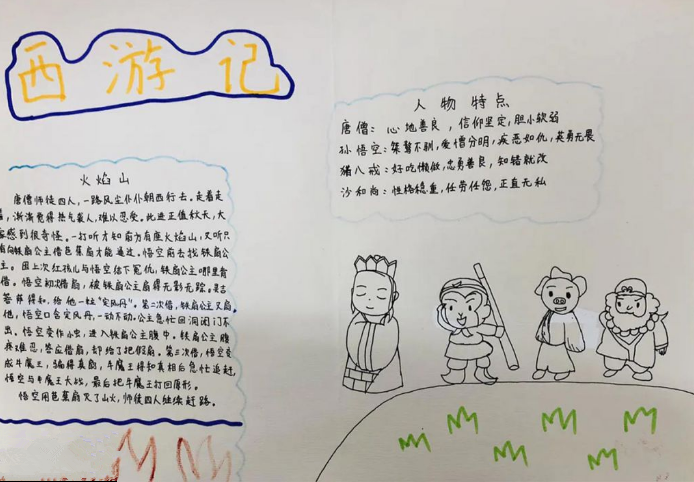 西游记
人物特点
唐僧：心地善良，信仰坚定，胆小软弱
孙悟空：桀骜不驯，爱憎分明，疾恶如仇，英勇无畏
猪八戒：好吃懒做，忠勇善良，知错就改
沙和尚：性格稳重，任劳任怨，正直无私
火焰山
唐僧师徒四人，一路风尘仆仆朝西行去。走着走
着，渐渐觉得热气袭人，难以忍受。此进正值秋天，大
感到很奇怪。一打听才知前方有座火焰山，又听只
有向铁扇公主借芭蕉扇才能通过。悟空前去找铁扇公
主。因上次红孩儿与悟空结下冤仇，铁扇公主哪里肯
借。悟空初次借扇，被铁扇公主扇得无影无踪。灵吉
菩萨得知，给他一粒“定风丹”。第二次借，铁扇公主又扇
他，悟空口含定风丹，一动不动。公主急忙回洞闭门不
出。悟空变作小虫，进入铁扇公主腹中。铁扇公主腹
疼难忍，答应借扇，却给了把假扇。第三次借，悟空变
成牛魔王，骗得真扇，牛魔王得知真相后急忙追赶，
悟空与牛魔王大战，最后把牛魔王打回原形。
悟空用芭蕉扇灭了山火，师徒四人继续赶路。